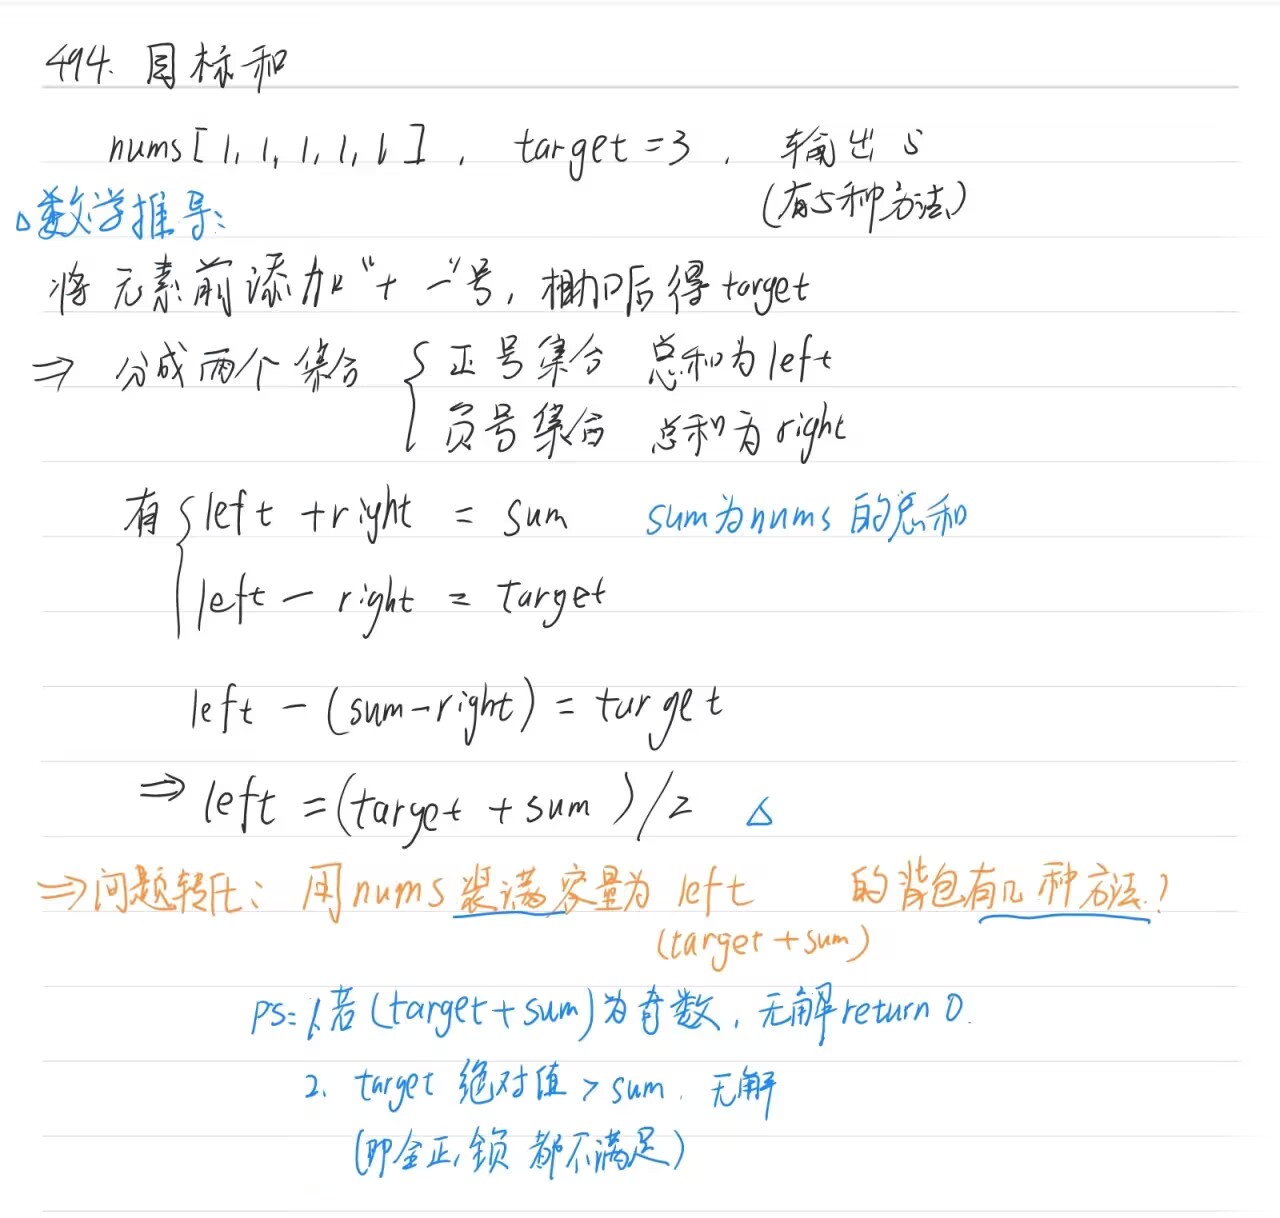 494. 目标和
nums[1,1,1,1,1], target=3, 输出 5
(有5种方法)
△数学推导:
将元素前添加“+ -”号,相加后得target
⇒ 分成两个集合 { 正号集合 总和为left
负号集合 总和为right
有 { left + right = sum sum为nums的总和
left - right = target
left - (sum-right) = target
⇒ left = (target + sum)/2 △
⇒问题转化: 用nums装满容量为 left 的背包有几种方法?
(target+sum)
ps: 1.若(target+sum)为奇数,无解return 0.
2. target 绝对值 > sum. 无解
(即全正,全负 都不满足)